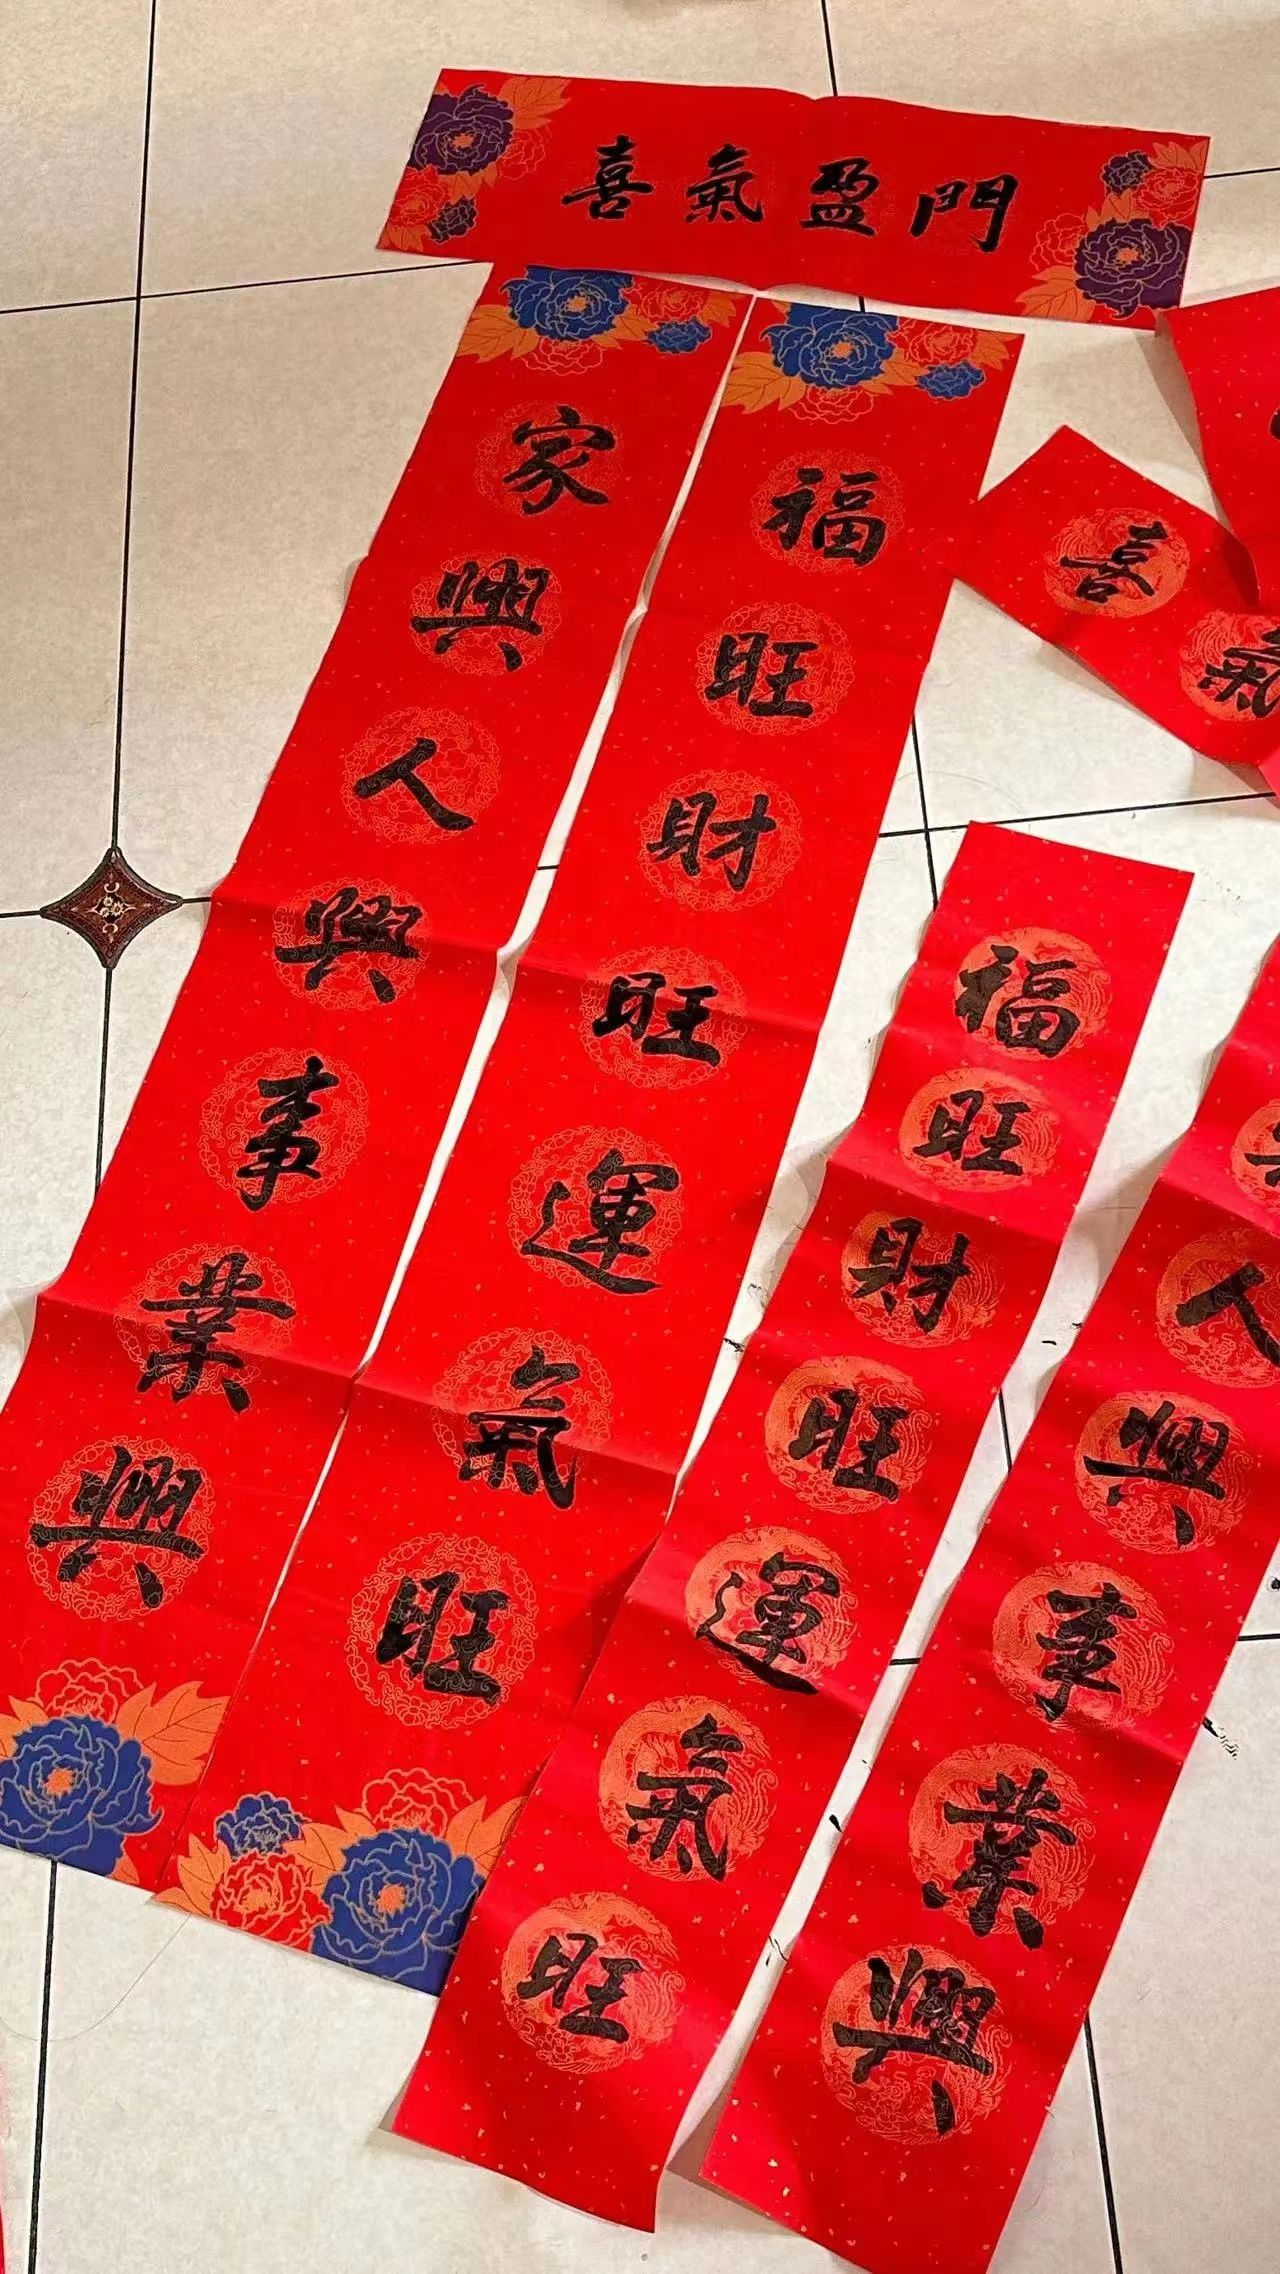 喜氣盈門
家興人興事業興
福旺財旺運氣旺
喜氣
福旺財旺運氣旺
人興事業興